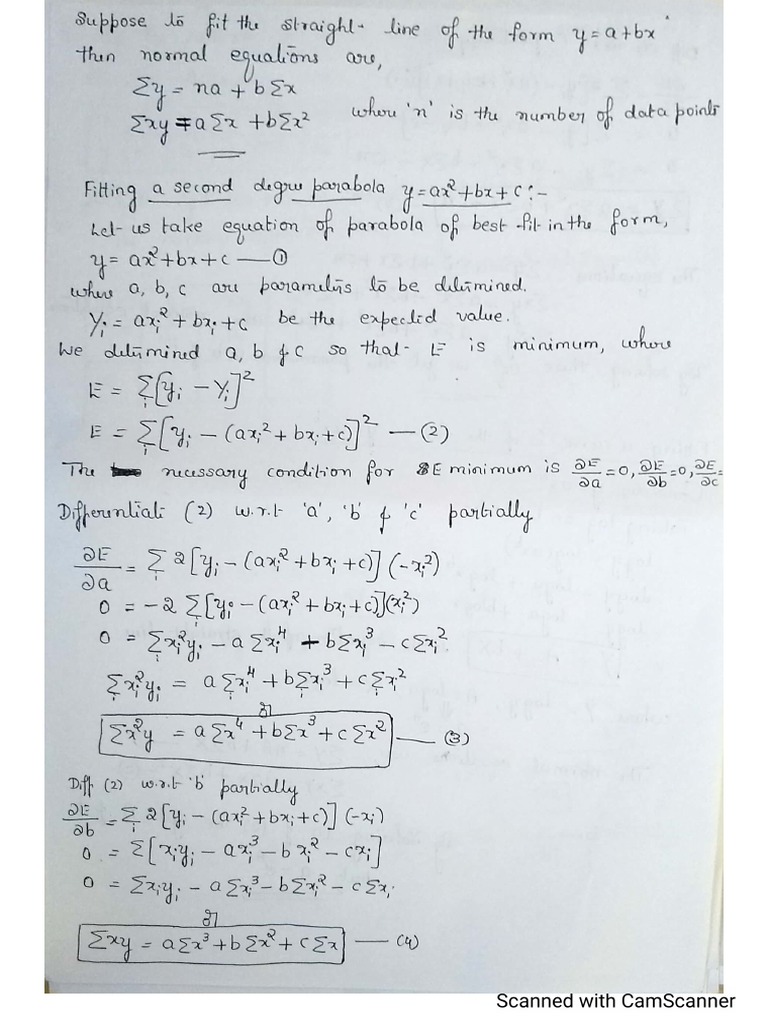 Suppose to fit the straight line of the form y = a+bx
then normal equations are,
Σy = na + bΣx
Σxy = aΣx + bΣx² where 'n' is the number of data points
Fitting a second degree parabola y = ax²+bx+c :-
Let us take equation of parabola of best fit in the form,
y = ax²+bx+c —— ①
where a, b, c are parameters to be determined.
Yᵢ = axᵢ² + bxᵢ + c be the expected value.
We determined a, b & c so that E is minimum, where
E = Σᵢ[yᵢ - Yᵢ]²
E = Σᵢ[yᵢ - (axᵢ² + bxᵢ + c)]² — (2)
The necessary condition for E minimum is ∂E/∂a = 0, ∂E/∂b = 0, ∂E/∂c =
Differentiate (2) w.r.t 'a', 'b' & 'c' partially
∂E/∂a = Σᵢ 2[yᵢ - (axᵢ² + bxᵢ + c)] (-xᵢ²)
0 = -2 Σᵢ[yᵢ - (axᵢ² + bxᵢ + c)](xᵢ²)
0 = Σᵢxᵢ²yᵢ - aΣxᵢ⁴ - bΣxᵢ³ - cΣxᵢ²
Σᵢxᵢ²yᵢ = aΣᵢxᵢ⁴ + bΣᵢxᵢ³ + cΣᵢxᵢ²
or
Σx²y = aΣx⁴ + bΣx³ + cΣx² —— (3)
Diff (2) w.r.t 'b' partially
∂E/∂b = Σᵢ 2[yᵢ - (axᵢ² + bxᵢ + c)] (-xᵢ)
0 = Σ[xᵢyᵢ - axᵢ³ - bxᵢ² - cxᵢ]
0 = Σxᵢyᵢ - aΣxᵢ³ - bΣxᵢ² - cΣxᵢ
or
Σxy = aΣx³ + bΣx² + cΣx —— (4)
Scanned with CamScanner